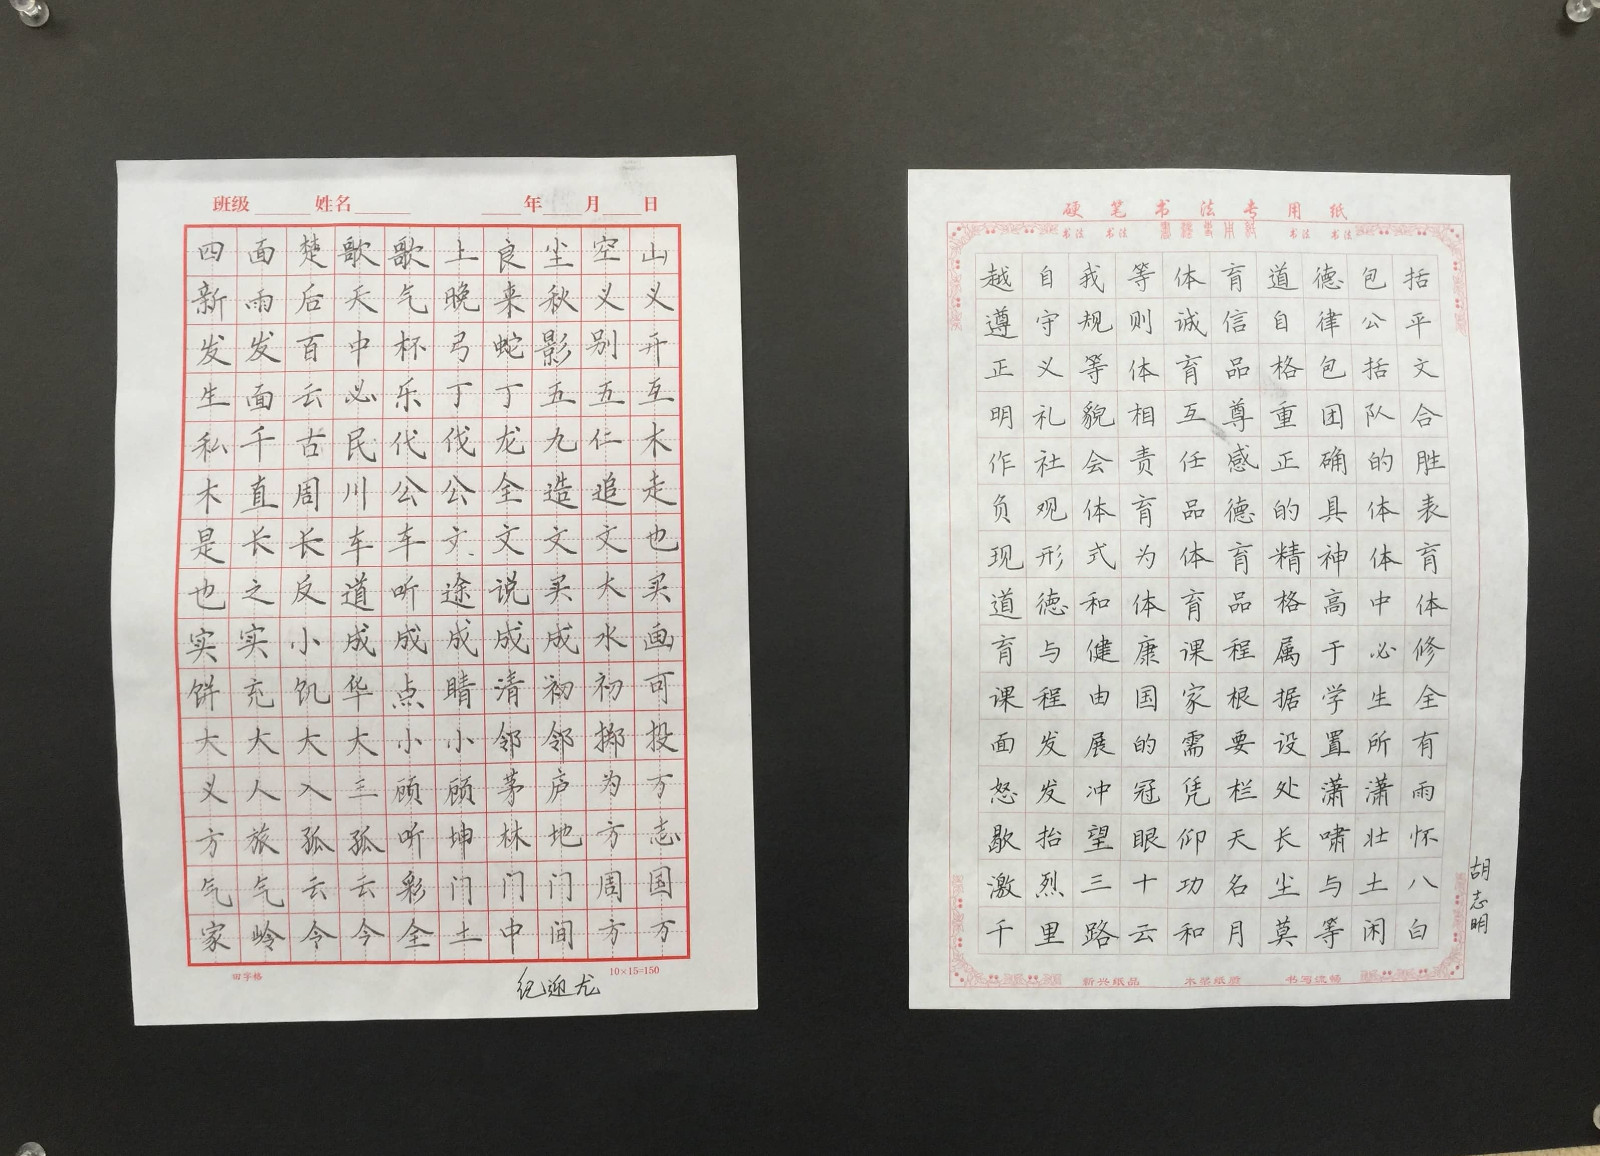 班级 姓名 年 月 日
四面楚歌歌上良尘空山
新雨后天气晚来秋义义
发发百中杯弓蛇影别开
生面云必乐丁丁五五互
私千古民代伐龙九仁木
木直周川公公全造追走
是长长车车文文文文也
也之反道听途说买大买
实实小成成成成成水画
饼充饥华点睛清初初可
大大大大小小邻邻掷投
义人入三顾顾茅庐为万
方旅孤孤听坤林地方志
气气云云彩门门门周国
家岭令今全土中间方万
田字格 10×15=150
纪迎龙
硬笔书法专用纸
书法 书法 书法 书法
越自我等体育道德包括
遵守规则诚信自律公平
正义等体育品格包括文
明礼貌相互尊重团队合
作社会责任感正确的胜
负观体育品德的具体表
现形式为体育精神体育
道德和体育品格高中体
育与健康课程属于必修
课程由国家根据学生全
面发展的需要设置所有
怒发冲冠凭栏处潇潇雨
歇抬望眼仰天长啸壮怀
激烈三十功名尘与土八
千里路云和月莫等闲白
胡志明
新兴纸品 木浆纸质 书写流畅